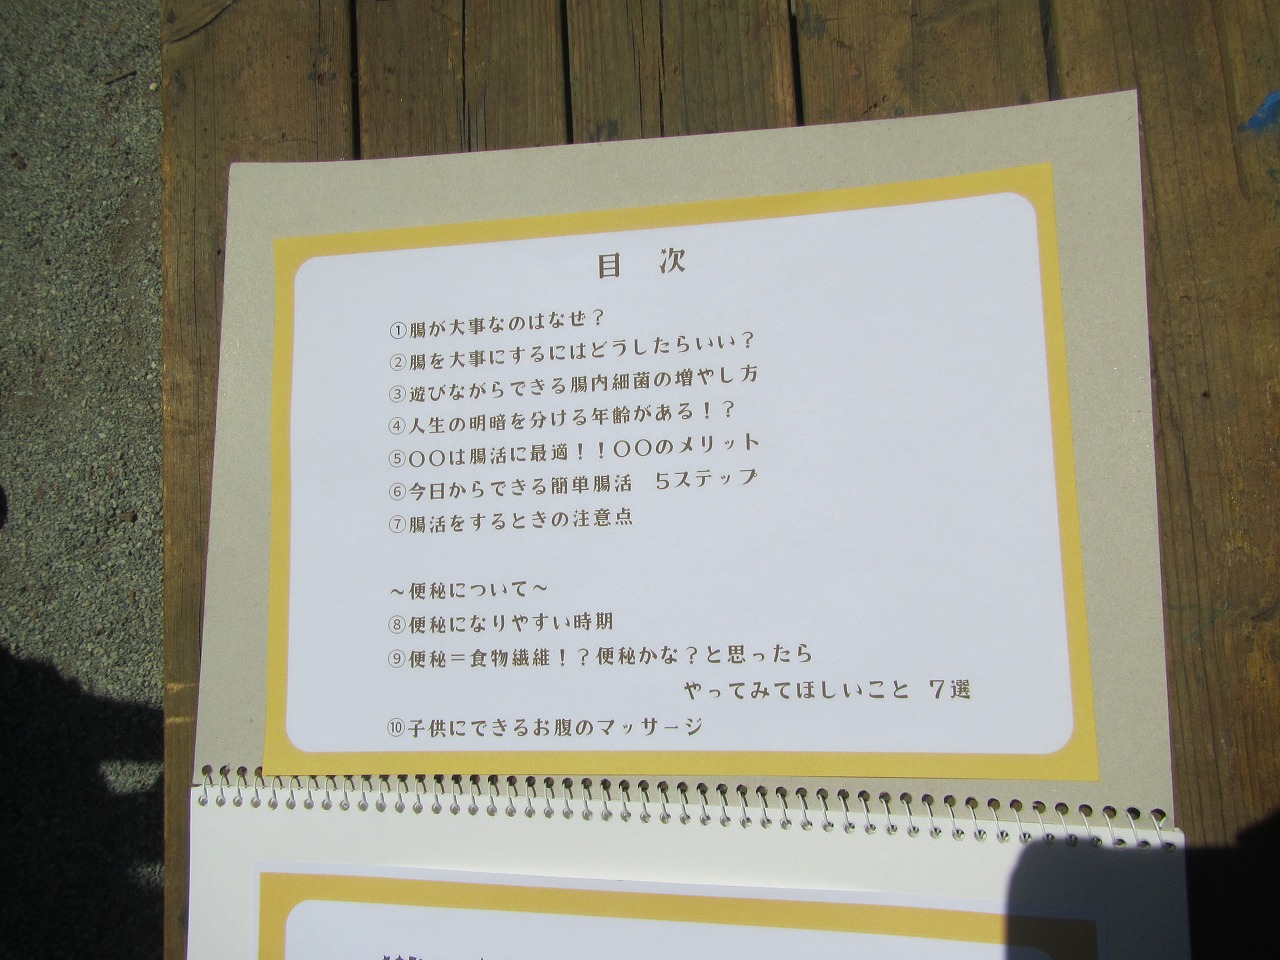 目 次
①腸が大事なのはなぜ？
②腸を大事にするにはどうしたらいい？
③遊びながらできる腸内細菌の増やし方
④人生の明暗を分ける年齢がある！？
⑤〇〇は腸活に最適！！〇〇のメリット
⑥今日からできる簡単腸活　５ステップ
⑦腸活をするときの注意点
～便秘について～
⑧便秘になりやすい時期
⑨便秘＝食物繊維！？便秘かな？と思ったら
やってみてほしいこと ７選
⑩子供にできるお腹のマッサージ